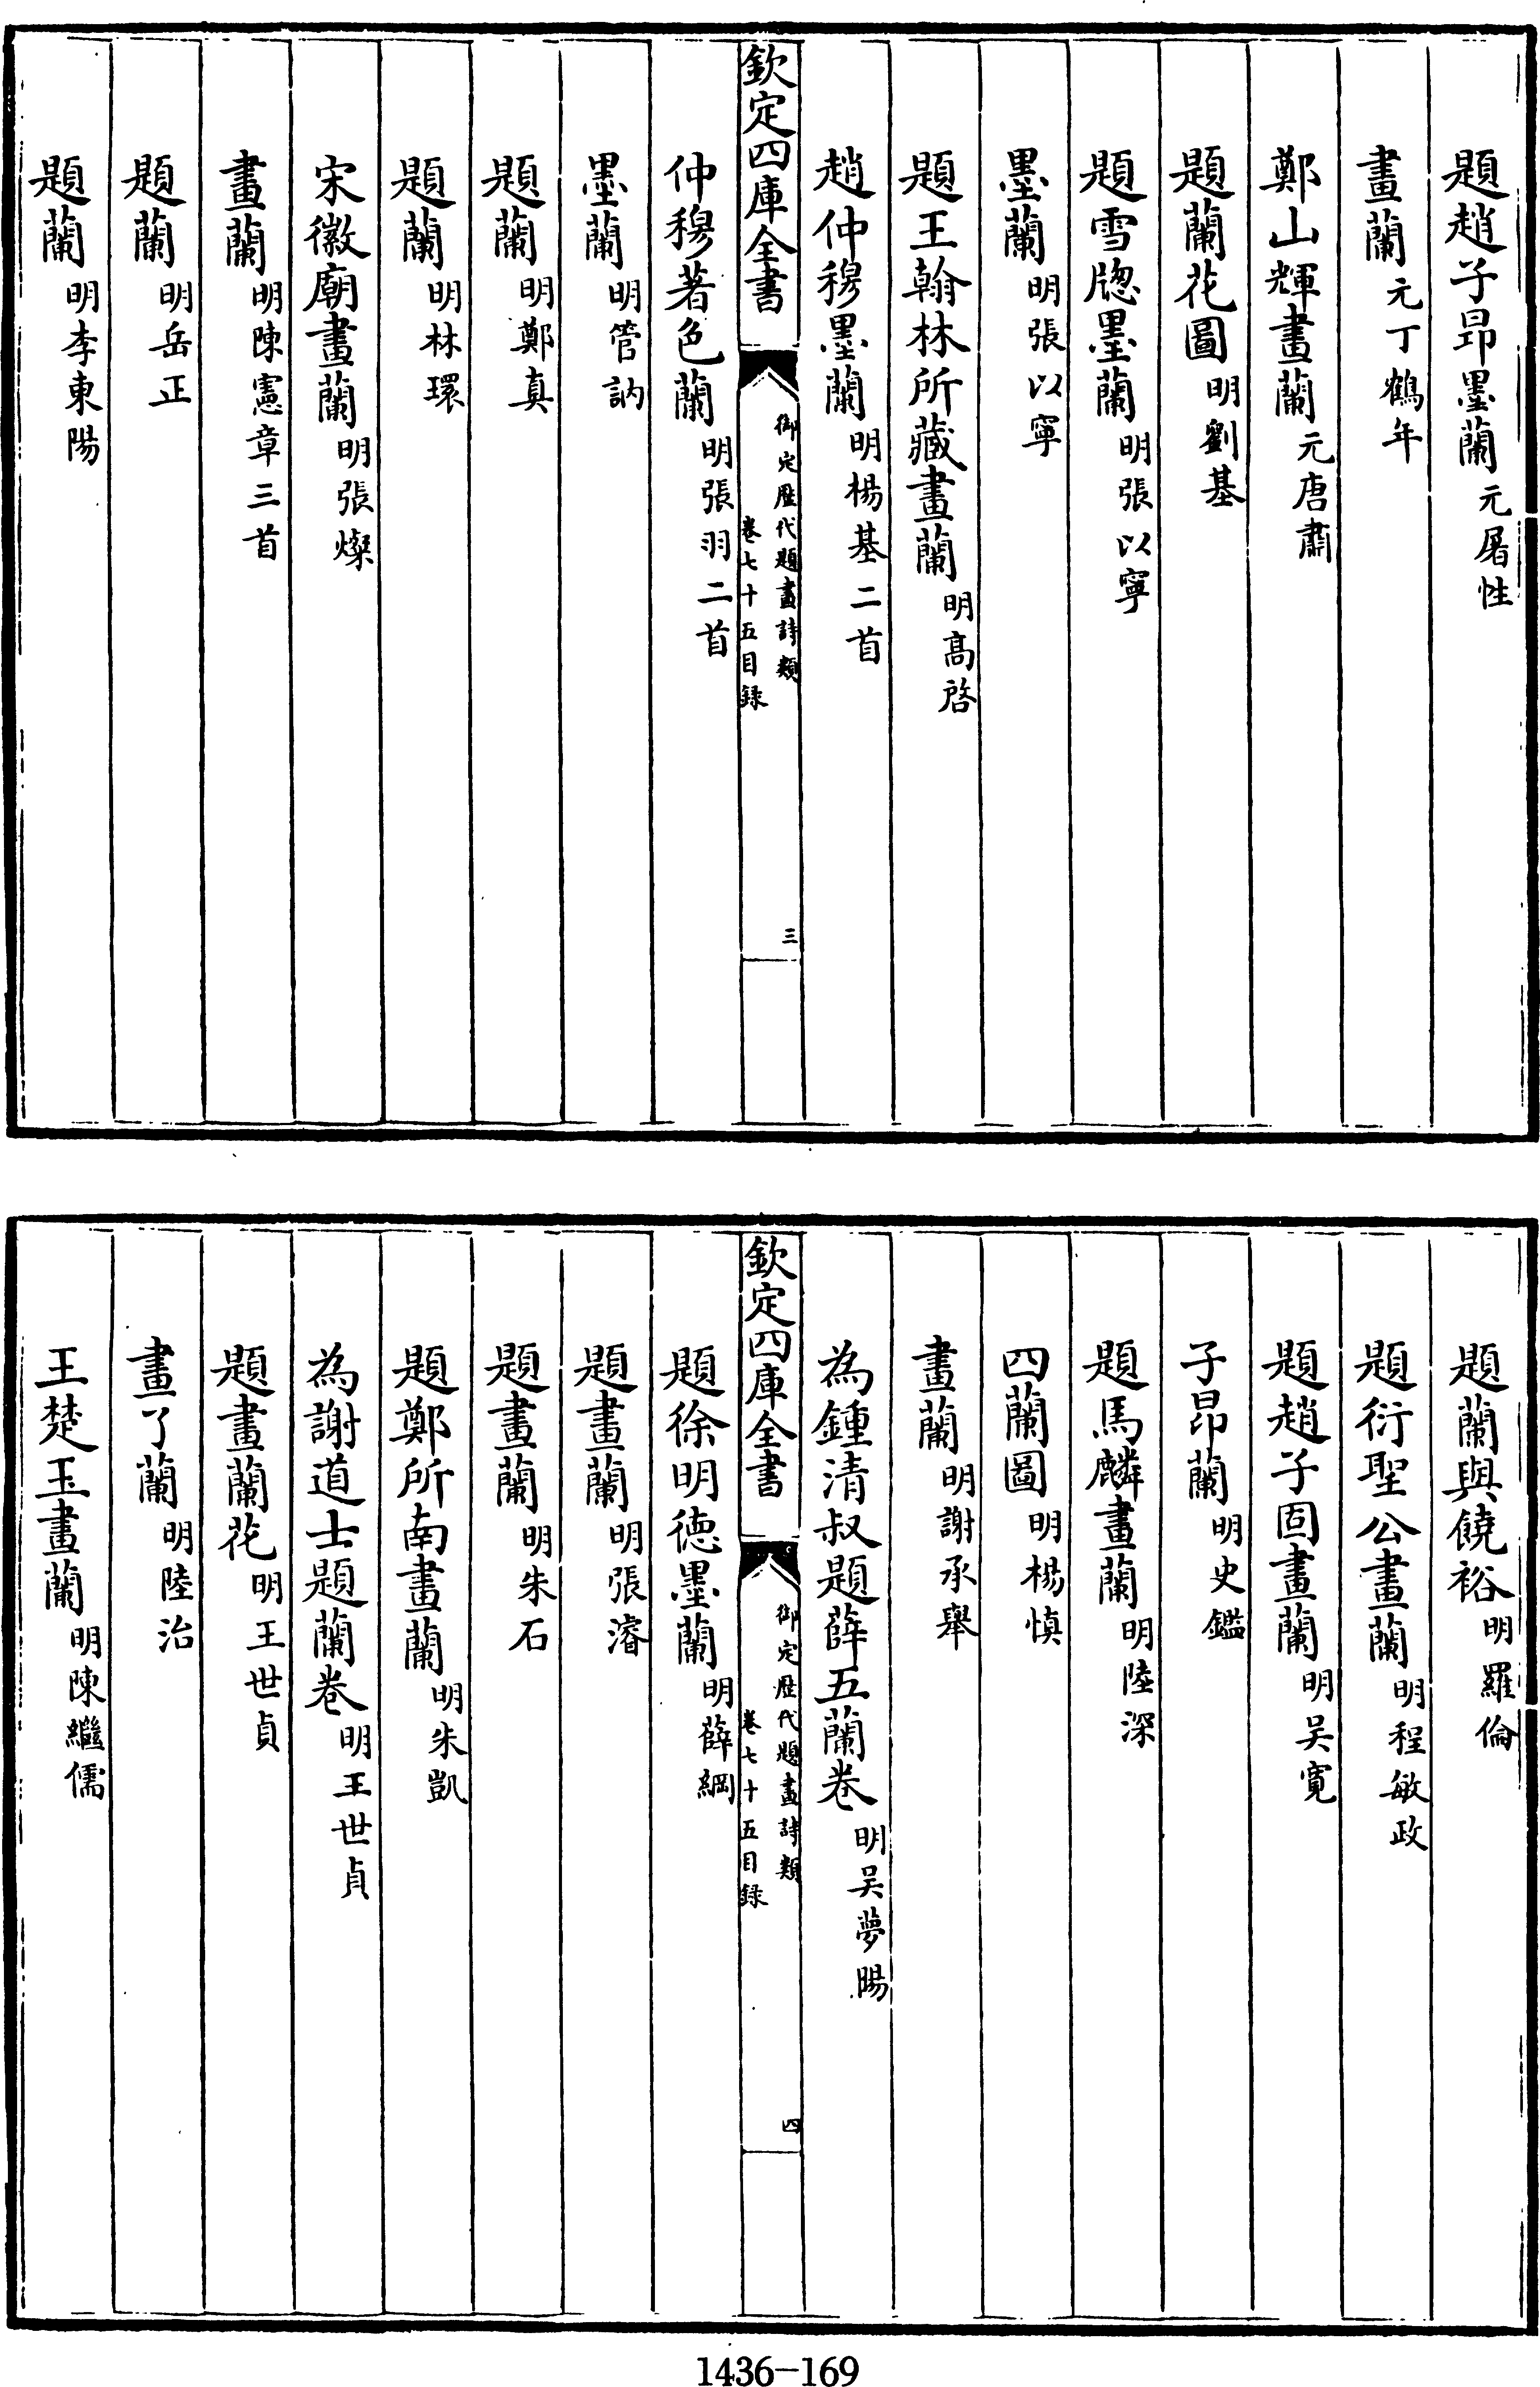 題趙子昂墨蘭元屠性
畫蘭元丁鶴年
鄭山輝畫蘭元唐肅
題蘭花圖明劉基
題雪牕墨蘭明張以寧
墨蘭明張以寧
題王翰林所藏畫蘭明高啓
趙仲穆墨蘭明楊基二首
欽定四庫全書
御定歷代題畫詩類
卷七十五目録
三
仲穆著色蘭明張羽二首
墨蘭明管訥
題蘭明鄭真
題蘭明林環
宋徽廟畫蘭明張燦
畫蘭明陳憲章三首
題蘭明岳正
題蘭明李東陽
題蘭與饒裕明羅倫
題衍聖公畫蘭明程敏政
題趙子固畫蘭明吳寛
子昂蘭明史鑑
題馬麟畫蘭明陸深
四蘭圖明楊慎
畫蘭明謝承舉
為鍾清叔題薛五蘭卷明吳夢暘
欽定四庫全書
御定歷代題畫詩類
卷七十五目録
四
題徐明徳墨蘭明薛綱
題畫蘭明張濬
題畫蘭明朱石
題鄭所南畫蘭明朱凱
為謝道士題蘭卷明王世貞
題畫蘭花明王世貞
畫了蘭明陸治
王楚玉畫蘭明陳繼儒
1436-169